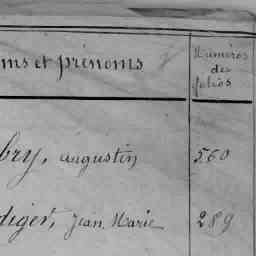 ms et prénoms
Numéros
des
folios
bry, augustin 560
diger, Jean Marie 289